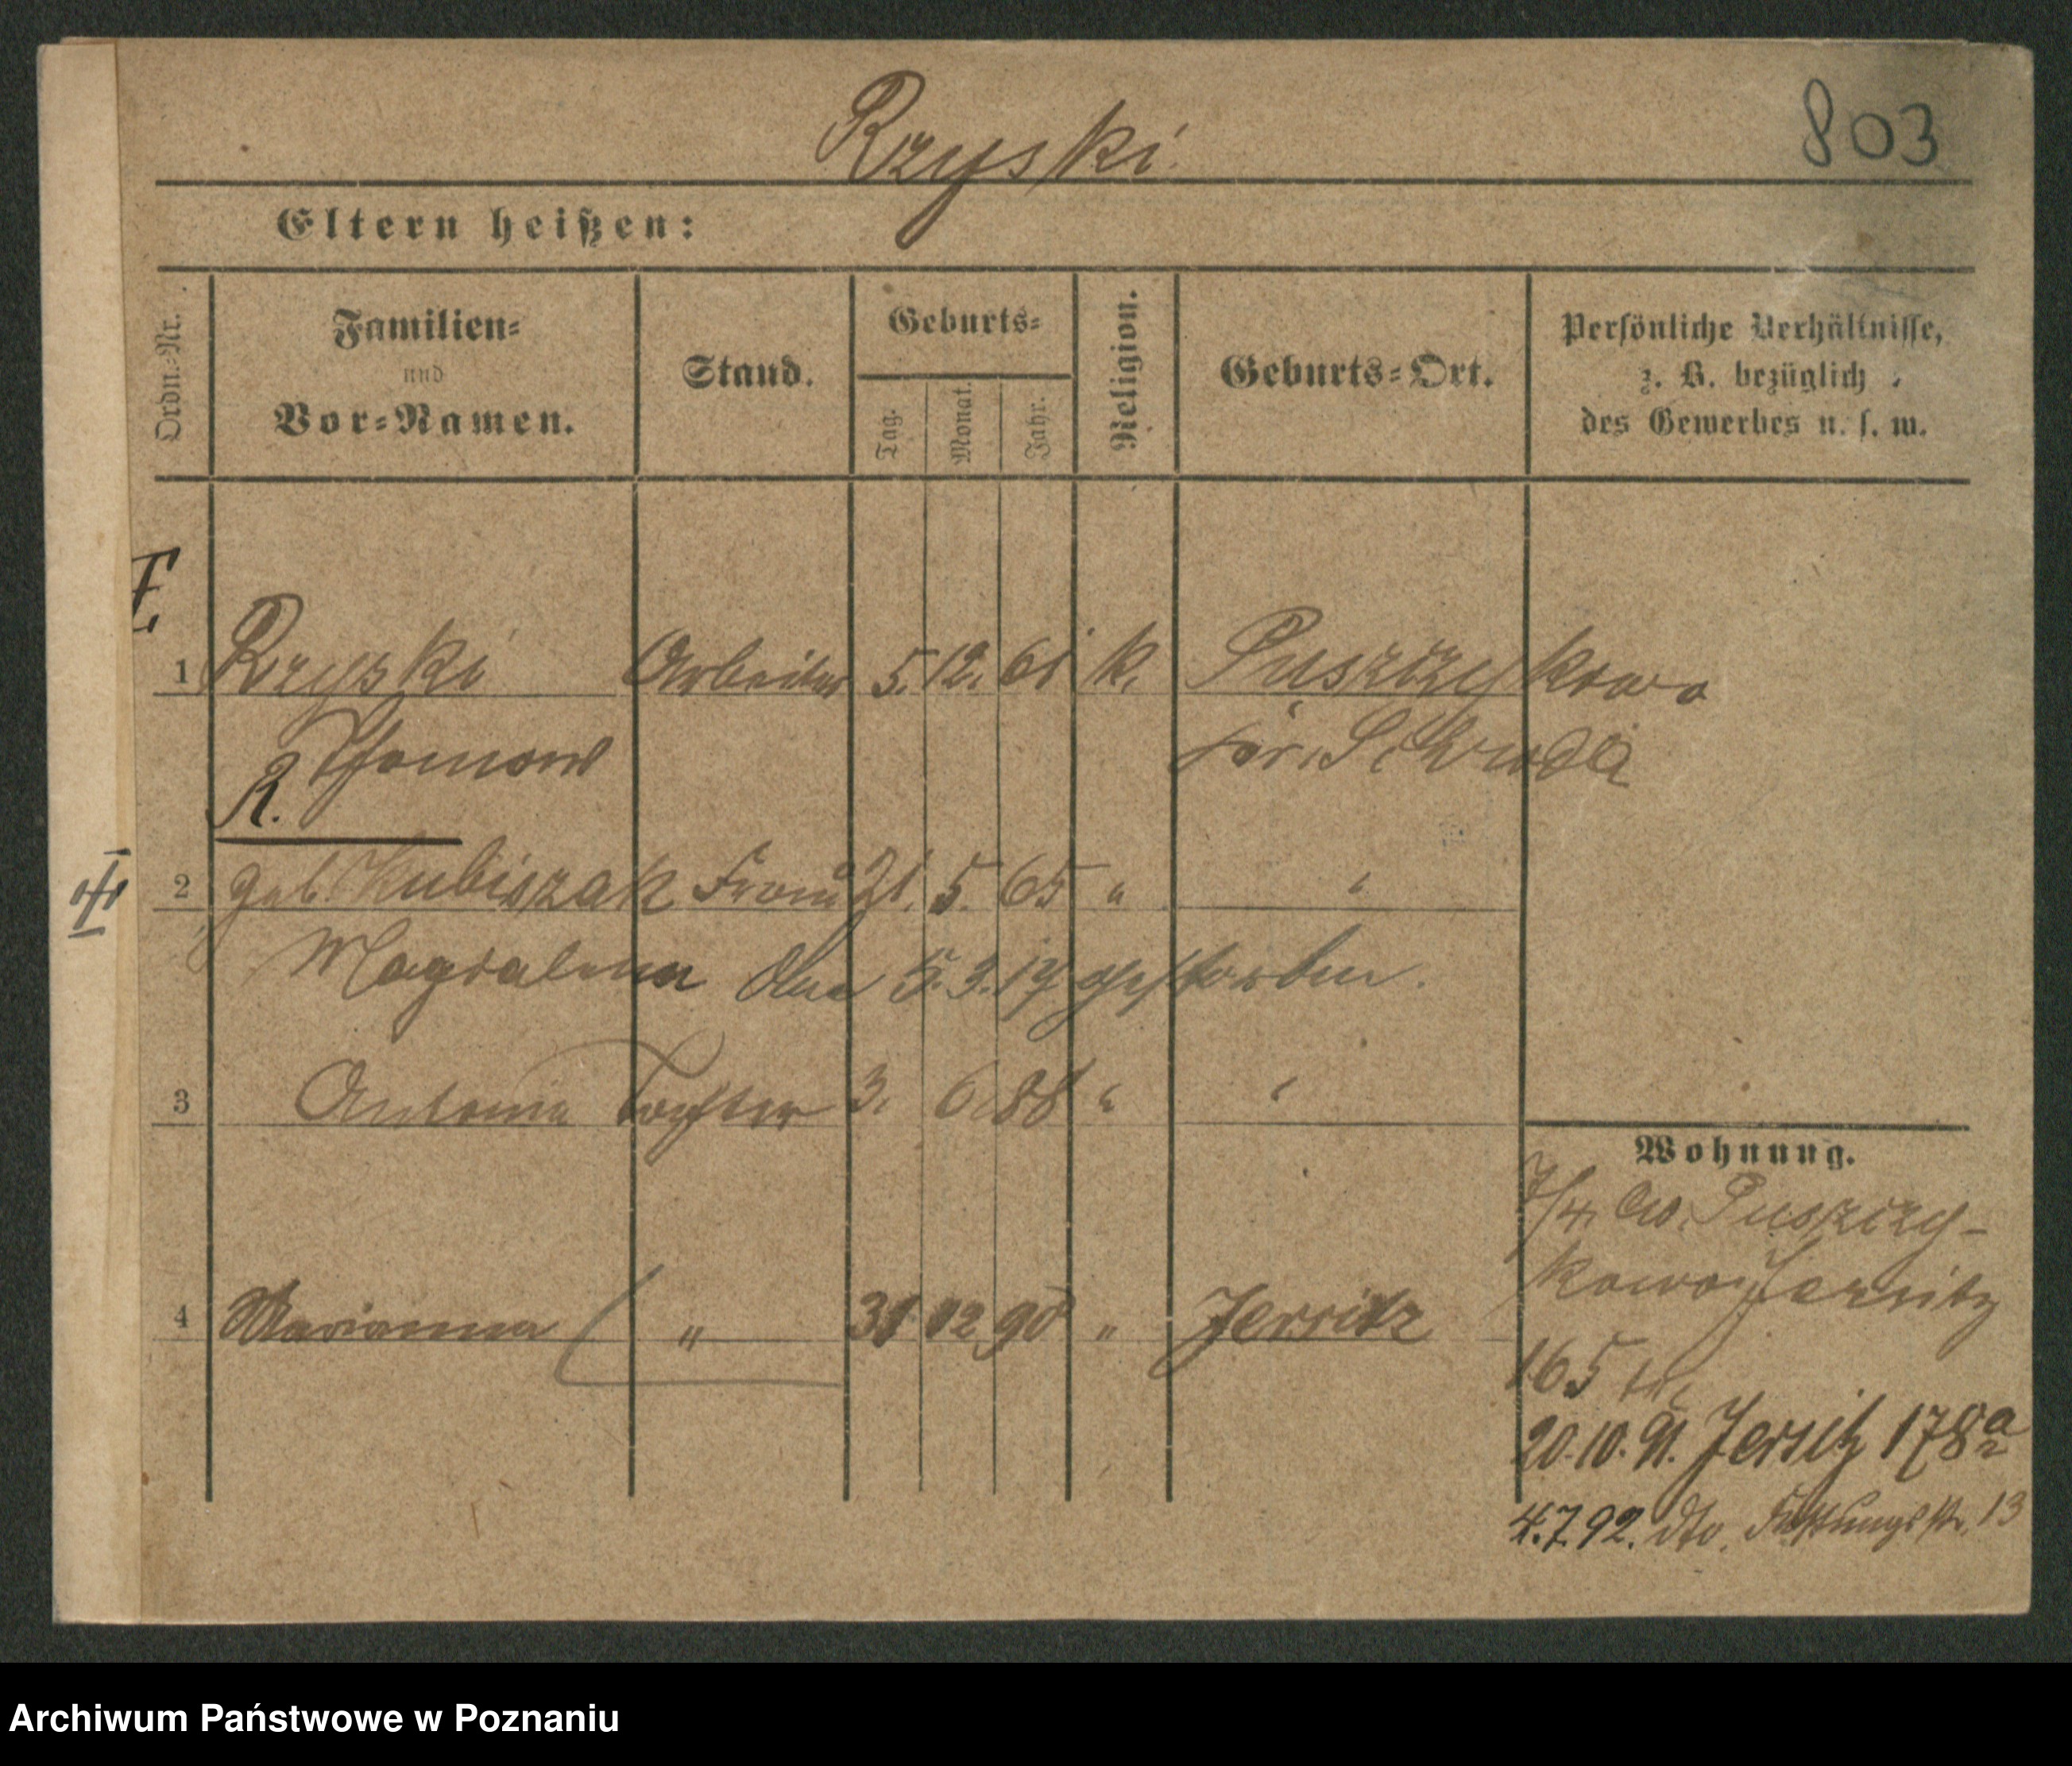 Rzyski
803
Eltern heißen:
Ordn.-Nr.
Familien-
und
Vor-Namen.
Stand.
Geburts-
Tag.
Monat.
Jahr.
Religion.
Geburts-Ort.
Persönliche Verhältnisse,
z. B. bezüglich
des Gewerbes u. s. w.
1 Rzyski Arbeiter 5. 12. 61 k. Puszczykowo
Thomas Schroda
R.
2 geb. Kubiszak Frau 21. 5. 65 "
"
Magdalena den 5.3.19 gestorben.
3 Antonie Tochter 3. 6. 88 " "
4 Marianna " 31 12 90 " Jersitz
Wohnung.
7/4. Puszczy-
kowo Jersitz
165
20.10.91. Jersitz 178a
4.7.92. dto. 13
Archiwum Państwowe w Poznaniu